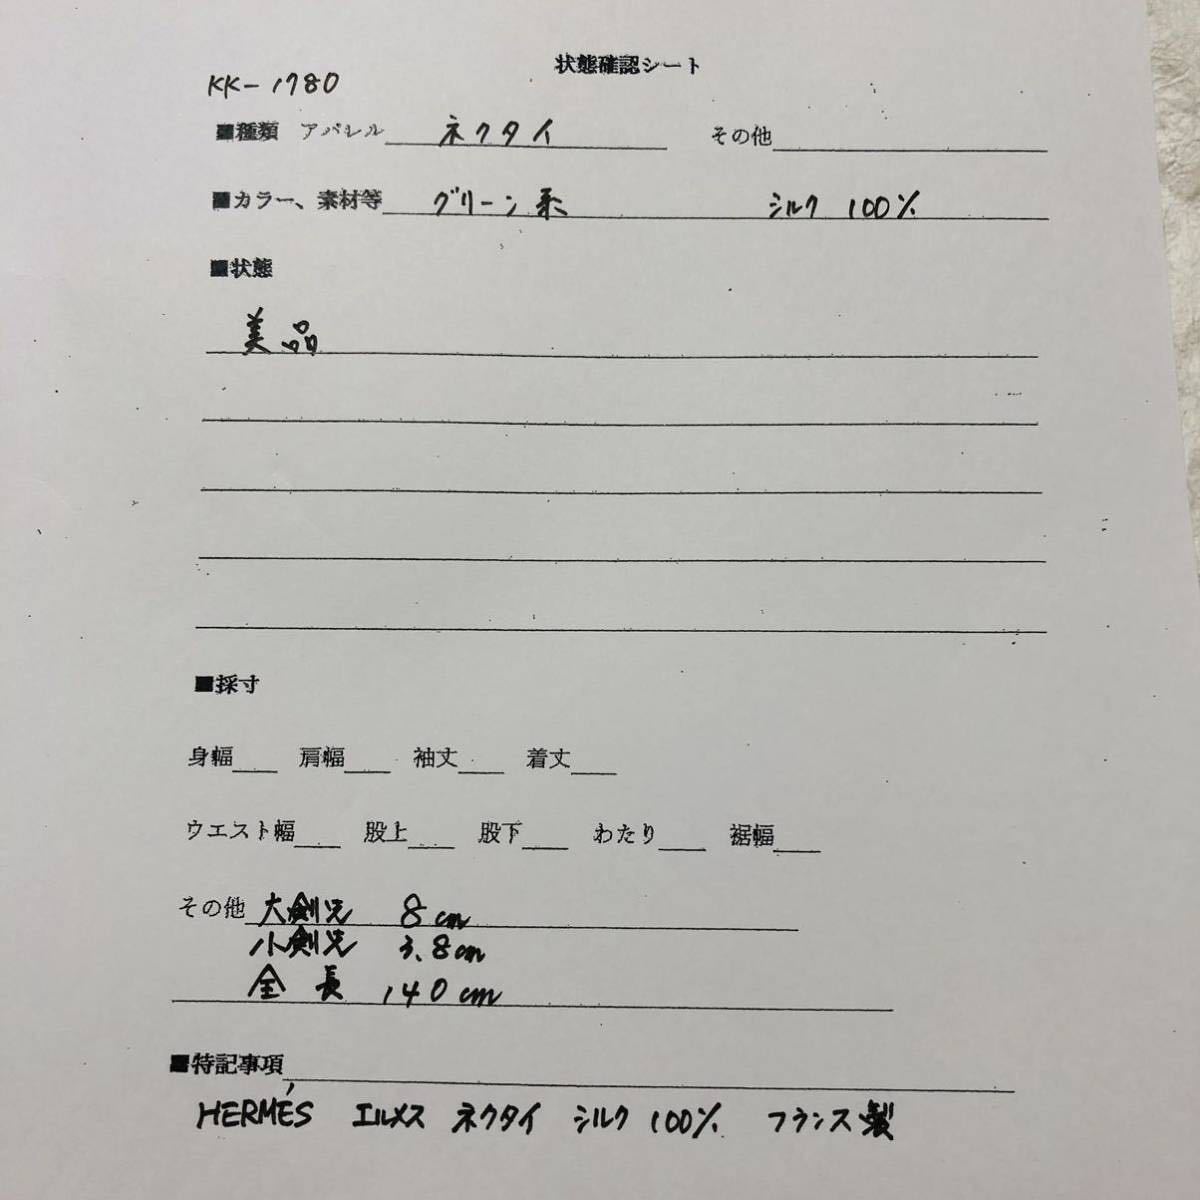 状態確認シート
KK-1780
■種類 アパレル ネクタイ その他
■カラー、素材等 グリーン系 シルク 100%
■状態
美品
■採寸
身幅 肩幅 袖丈 着丈
ウエスト幅 股上 股下 わたり 裾幅
その他 大剣巾 8cm
小剣巾 3.8cm
全長 140cm
■特記事項
HERMÉS エルメス ネクタイ シルク 100% フランス製